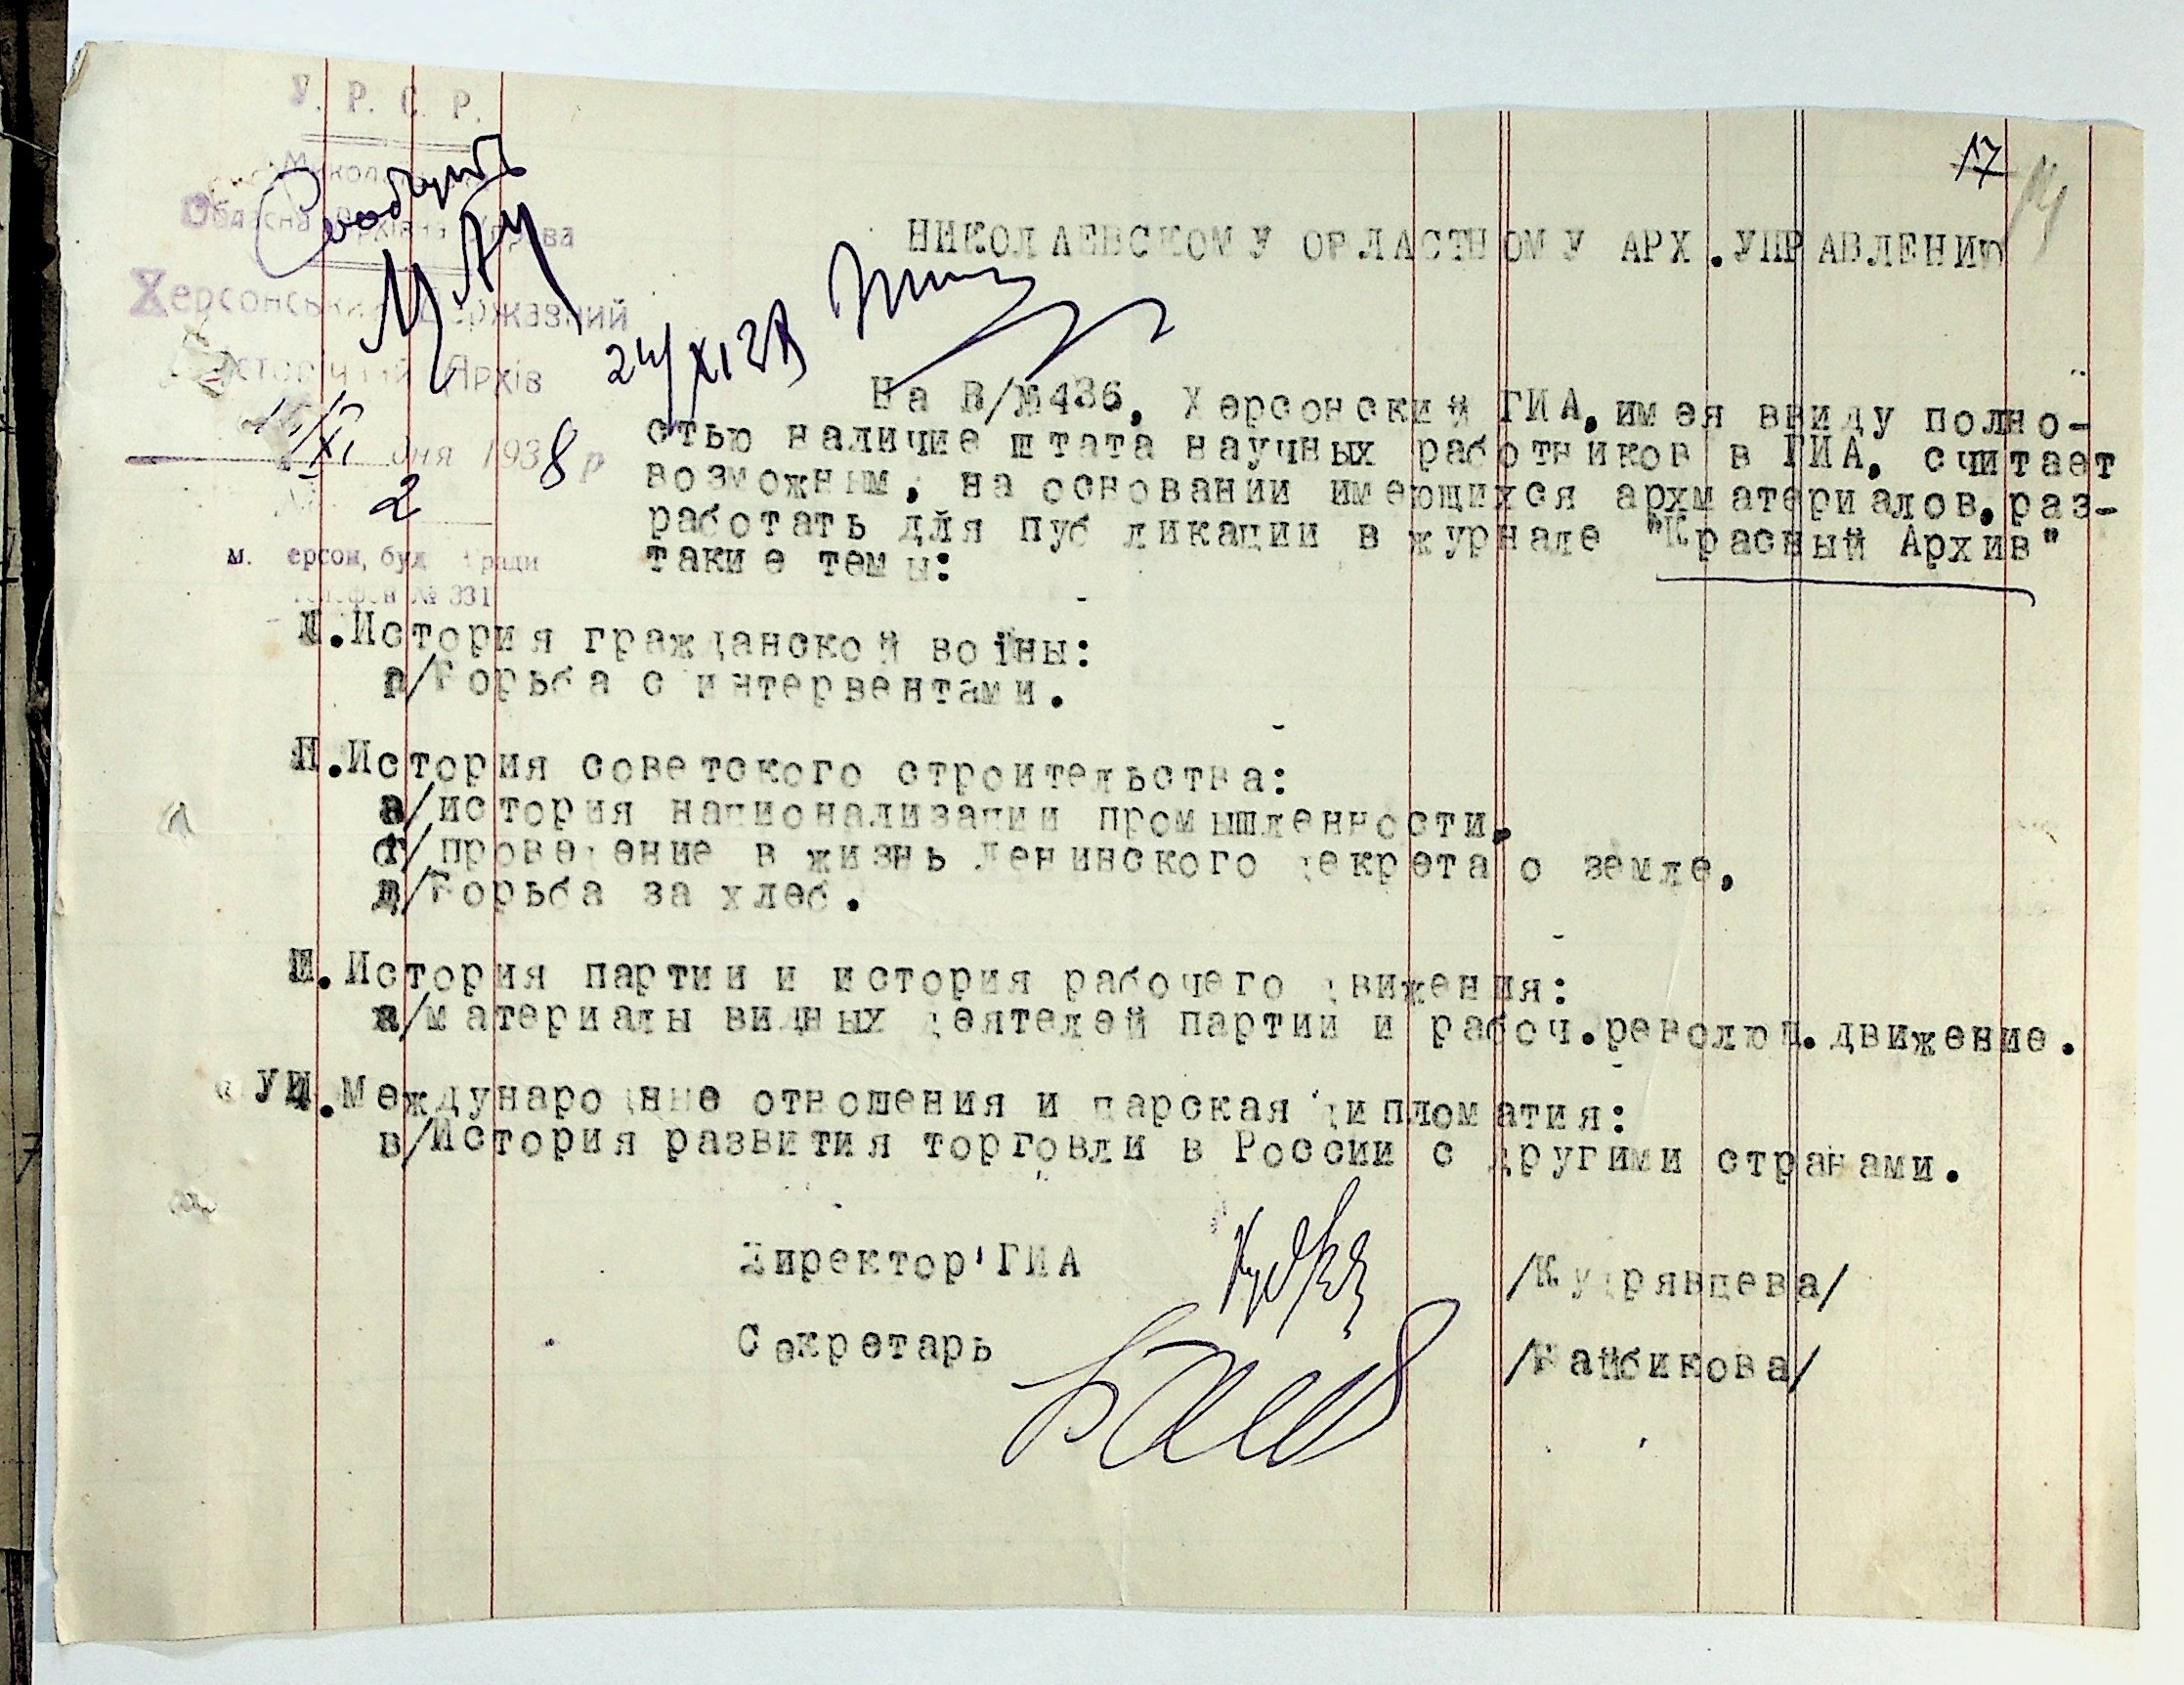 У. Р. С. Р.
Обласна Архівна Управа
Херсонський Державний
Історичний Архів
Сообщить
24/XI 38
17
/XI дня 1938 р
2
м. Херсон, буд. ради
телефон № 331
НИКОЛАЕВСКОМУ ОБЛАСТНОМУ АРХ.УПРАВЛЕНИЮ
На В/№436, Херсонский ГИА, имея ввиду полно-
стью наличие штата научных работников в ГИА, считает
возможным, на основании имеющихся архматериалов, раз-
работать для публикации в журнале "Красный Архив"
такие темы:
I.История гражданской войны:
а/Борьба с интервентами.
П.История советского строительства:
а/история национализации промышленности,
б/проведение в жизнь ленинского декрета о земле,
д/Борьба за хлеб.
Ш.История партии и история рабочего движения:
а/материалы видных деятелей партии и рабоч.революц.движение.
УШ.Международные отношения и царская дипломатия:
в/История развития торговли в России с другими странами.
Директор ГИА /Кудрявцева/
Секретарь /Байбикова/